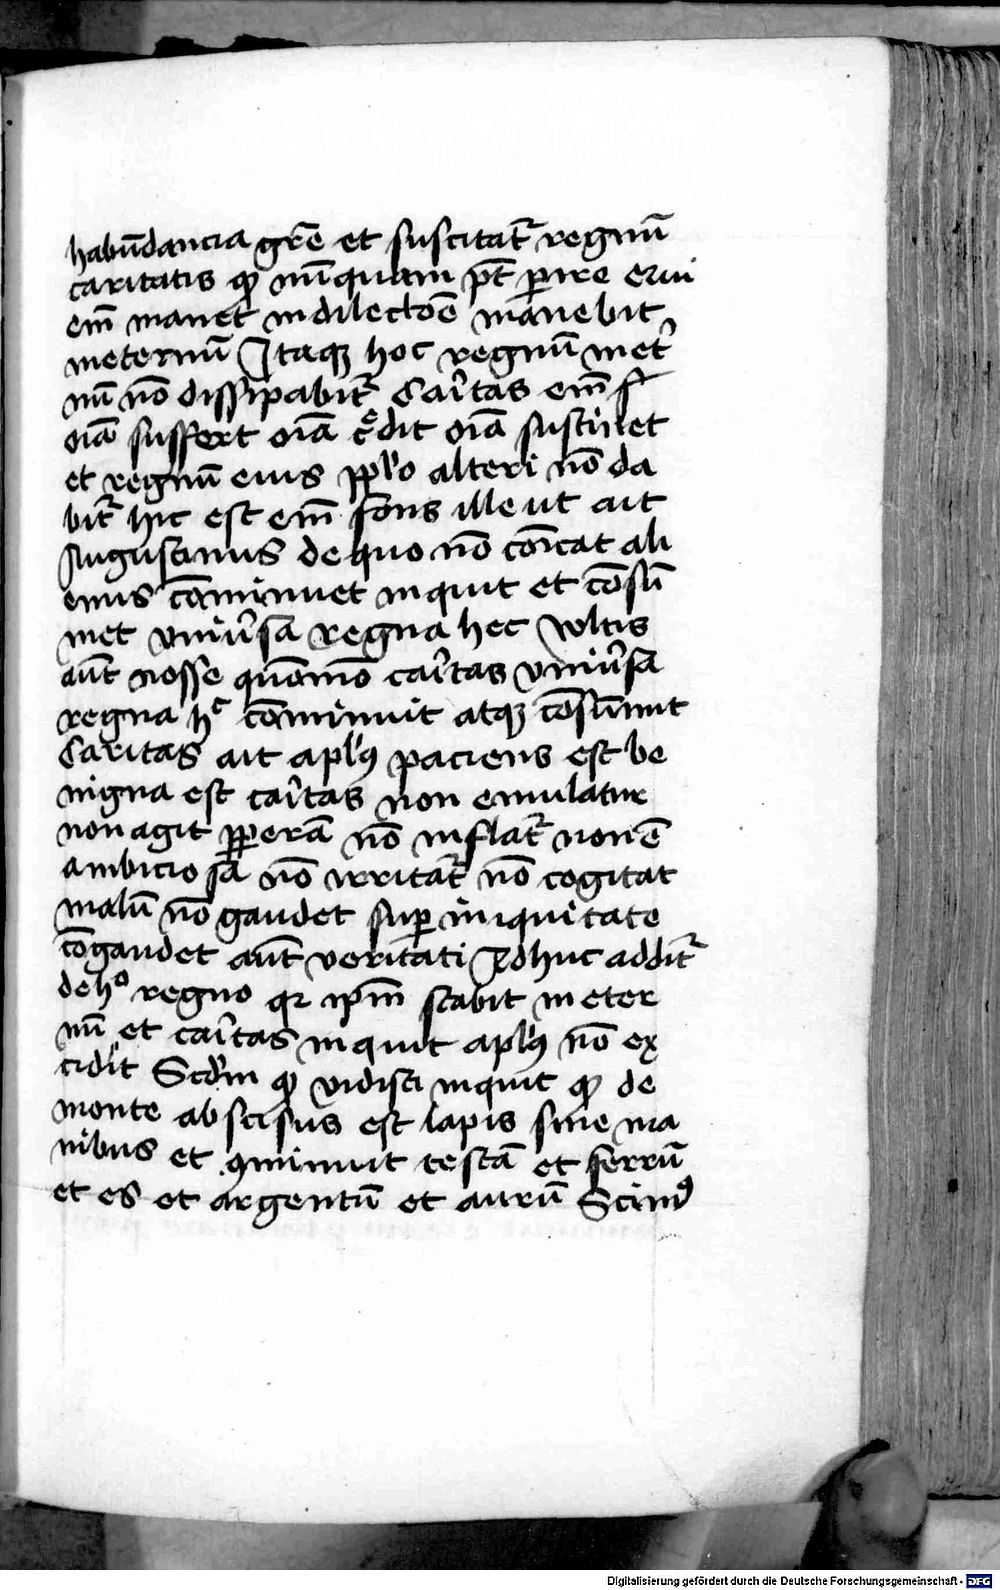 habūdancia gr̄e et suscitat᷑ regnū
caritatis qd̓ nūquam pt̄ ꝑire
em̄ manet in dilectōe manebit
ineternū Itaqꝫ hoc regnū ineter
nū nō dissipabit᷑ Cai̓tas em̄
oīa suffert oīa c̓dit oīa sustinet
et regnū eius ppl̓o alteri nō da
bit᷑ hic est em̄ fons ille ut ait
Augustinus de quo nō cōīcat ali
enus cōminuet inquit et cōsu
met vniu̓sa regna hec Wltis
aūt nosse quōmō cai̓tas vniu̓sa
regna hᶜ cōminuit atqꝫ cōsumit
Caritas ait apl̓ꝰ paciens est be
nigna est cai̓tas non emulatur
non agit ꝑperā nō inflat᷑ non ē
ambiciosa nō irritat᷑ nō cogitat
malū nō gaudet suꝑ iniquitate
cōgaudet aūt veritati Adhuc addit᷑
de hᵒ regno qꝛ ip̄m stabit in eter
nū et cai̓tas inquit apl̓ꝰ nō ex
cidit Scd̓m qd̓ vidisti inquit qd̓ de
monte abscisus est lapis sine ma
nibus et ꝯminuit testā et ferrū
et es et argentū et aurū Scimꝰ
Digitalisierung gefördert durch die Deutsche Forschungsgemeinschaft - DFG